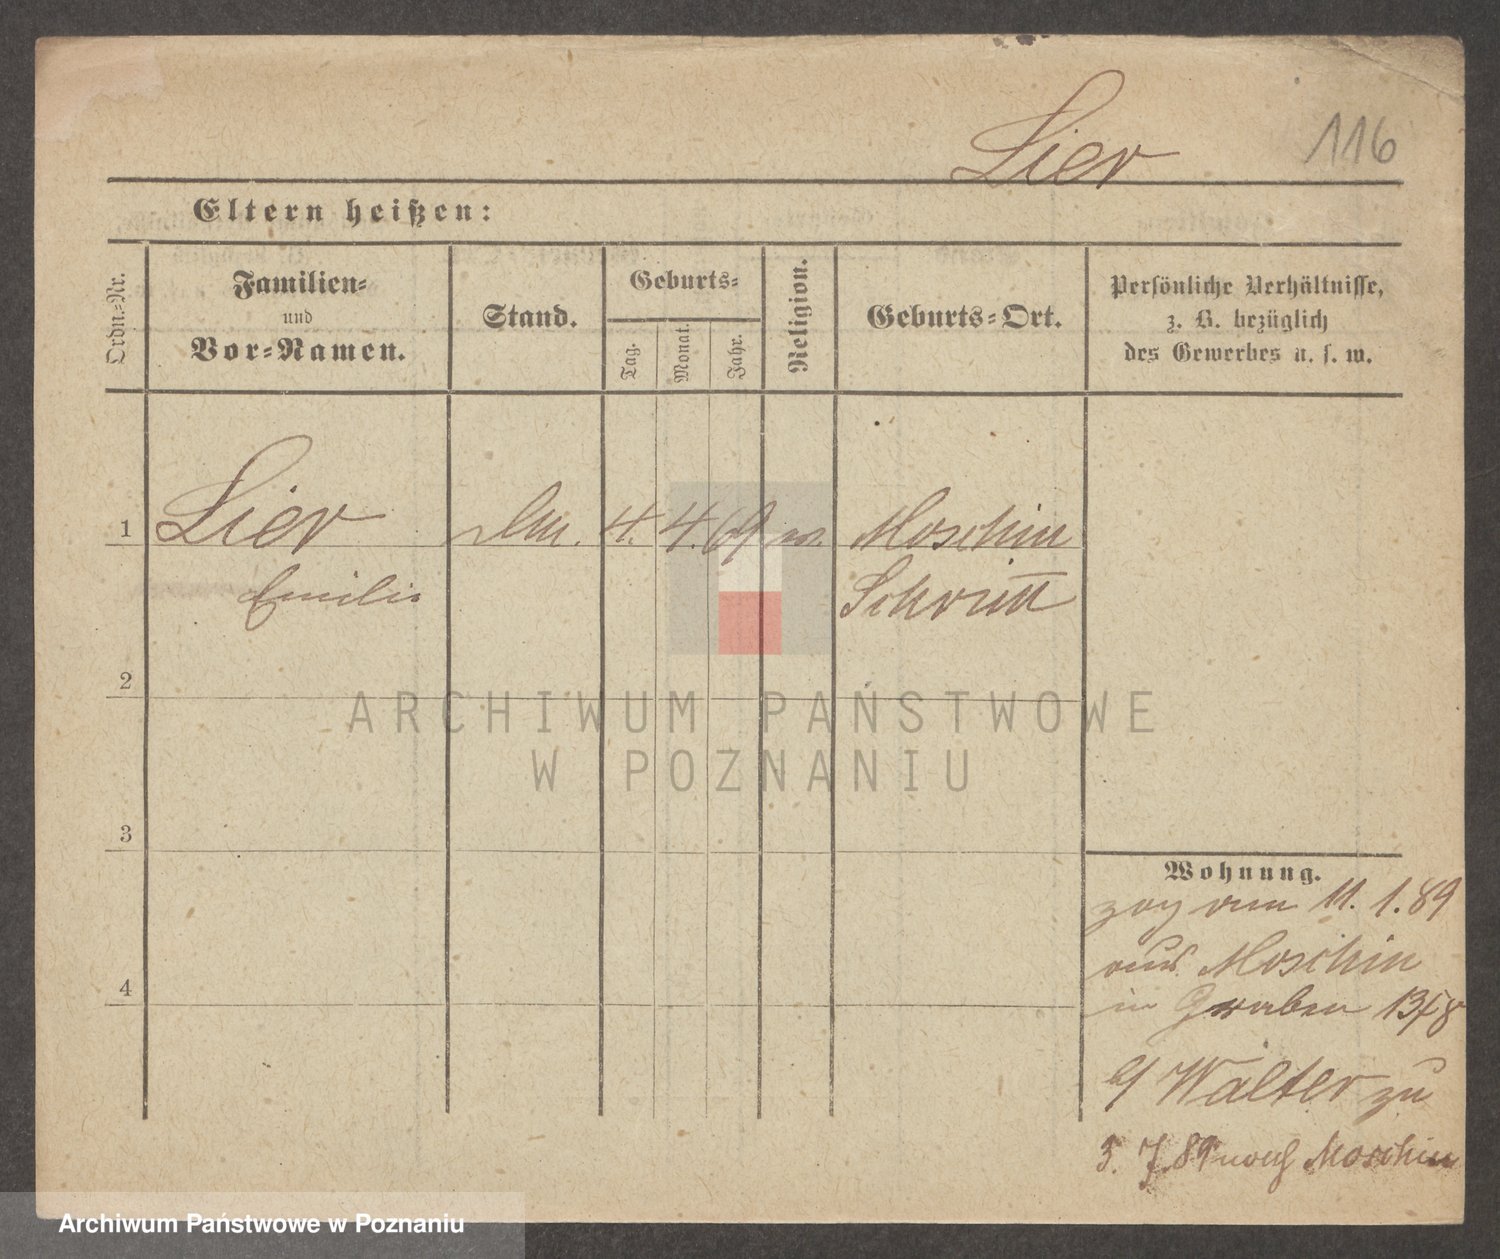 Lier 116
Eltern heißen:
Ordn.-Nr.
Familien-
und
Vor-Namen.
Stand.
Geburts-
Tag.
Monat.
Jahr.
Religion.
Geburts-Ort.
Persönliche Verhältnisse,
z. B. bezüglich
des Gewerbes u. s. w.
1 Lier 4. 4. 69 Moschin
Emilie Schrimm
2
3
4
Wohnung.
zog am 11. 1. 89
aus Moschin
in Graben 13/8
b/ Walter zu
5. 7. 89 nach Moschin
ARCHIWUM PAŃSTWOWE
W POZNANIU
Archiwum Państwowe w Poznaniu